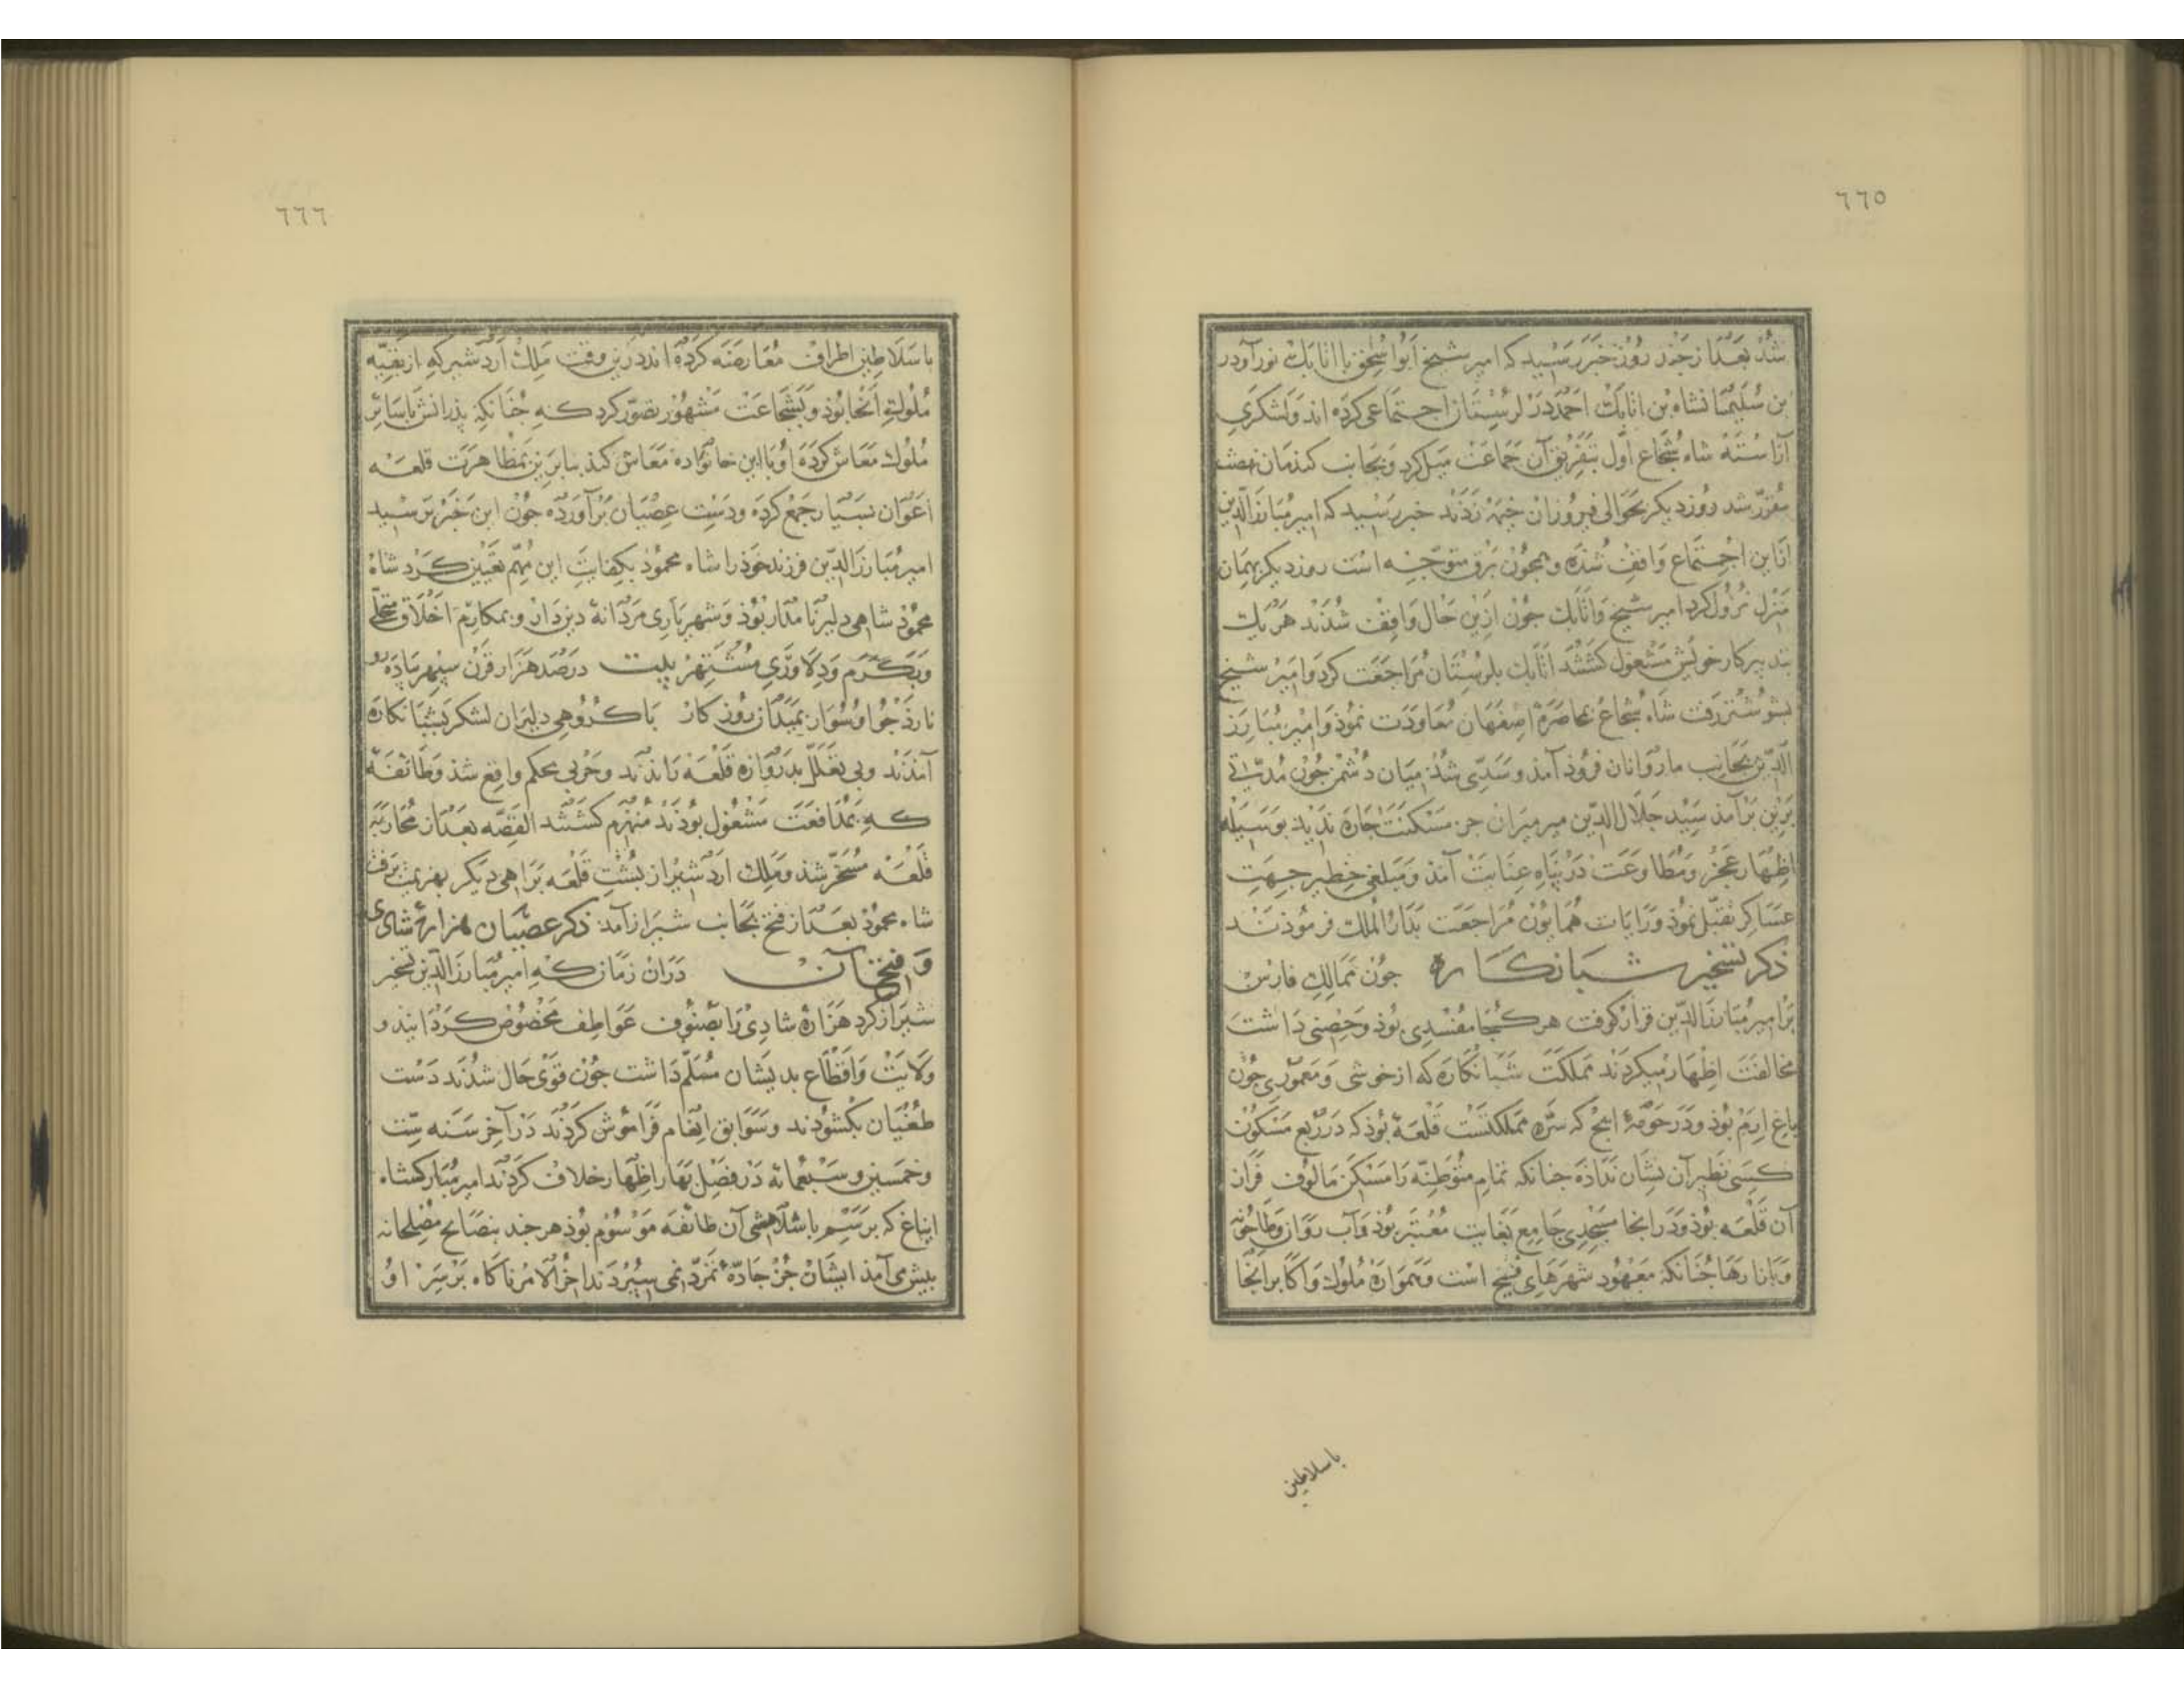 ٦٦٥
شد بعد از چند روز خبر رسید که امیر شیخ ابواسحق با اتابک نورآورد
بن سلیمانشاه بن اتابک احمد در لرستان اجتماعی کرده اند و لشکری
آراسته شاه شجاع اول بتفریق آن جماعت میل کرد و بجانب کندمان
مقرر شد روز دیکر بحوالی فیروزان خیمه زدند خبر رسید که امیر مبارز الدین
از این اجتماع واقف شده و همچون برق متوجه است روز دیکر بهمان
منزل نزول کرد امیر شیخ و اتابک چون ازین حال واقف شدند هر یک
بتدبیر کار خویش مشغول کشتند اتابک بلرستان مراجعت کرد و امیر شیخ
بشوشتر رفت شاه شجاع بمحاصرۀ اصفهان معاودت نمود و امیر مبارز
الدین بجانب ماروانان فرود آمد و سدی شد میان دشمن چون مدتی
برین برآمد سید جلال الدین میرمیران جز مسکنت چاره ندید بوسیله
اظهار عجز و مطاوعت در پناه عنایت آمد و مبلغی خطیر جهت
عساکر تقبل نمود و رایات همایون مراجعت بدار الملک فرمودند
ذکر تسخیر شبانکاره چون ممالک فارس
بر امیر مبارز الدین قرار کرفت هر کجا مفسدی بود و حصنی داشت
مخالفت اظهار میکردند مملکت شبانکاره که از خوشی و معموری چون
باغ ارم بود و در حومۀ ایج که سرّه مملکتست قلعۀ بود که در ربع مسکون
کسی نظیر آن نشان نداده چنانکه تمام متوطنه را مسکن مالوف فراز
آن قلعه بود و در انجا مسجدی جامع بغایت معتبر بود و آب روان و طاحونه
و بازارها چنانکه معهود شهرهای فسیح است و همواره ملوک و اکابر آنجا
باسلاطین
٦٦٦
باسلاطین اطراف معارضه کرده اند درین وقت ملک اردشیر که از بقیه
ملوک آنجا بود و بشجاعت مشهور تصور کرد که چنانکه پدرانش باسایر
ملوک معاش کرده او باین خانواده معاش کند بنابرین بمظاهرت قلعه
اعوان بسیار جمع کرده و دست عصیان برآورده چون این خبر برسید
امیر مبارز الدین فرزند خود را شاه محمود بکفایت این مهم تعیین کرد شاه
محمود شاهی دلیر نامدار بود و شهریاری مردانه دین دار و بمکارم اخلاق متحلی
و بکرم و دلاوری مشتهر بیت در صد هزار قرن سپهر پیاده رو
نارد چو او سوار بمیدان روزکار با کروهی دلیران لشکر بشبانکاره
آمدند و بی تعلل بدروازه قلعه راندند و حربی محکم واقع شد و طائفه
که بمدافعت مشغول بودند منهزم کشتند القصه بعد از محاربه
قلعه مسخر شد و ملک اردشیر از پشت قلعه براهی دیکر بهزیمت برفت
شاه محمود بعد از فتح بجانب شیراز آمد ذکر عصیان هزارۀ شادی
و فتح آن در آن زمان که امیر مبارز الدین تسخیر
شیراز کرد هزارۀ شادی را بصنوف عواطف مخصوص کردانید و
ولایت و اقطاع بدیشان مسلم داشت چون قوی حال شدند دست
طغیان بکشودند و سوابق انعام فراموش کردند در آخر سنه ست
و خمسین و سبعمائة در فصل بهار اظهار خلاف کردند امیر مبارکشاه
ایناغ که برسم باشلامشی آن طائفه موسوم بود هر چند بنصایح مصلحانه
پیش می آمد ایشان جز جادۀ تمرد نمی سپردند آخر الامر ناکاه بر سر او